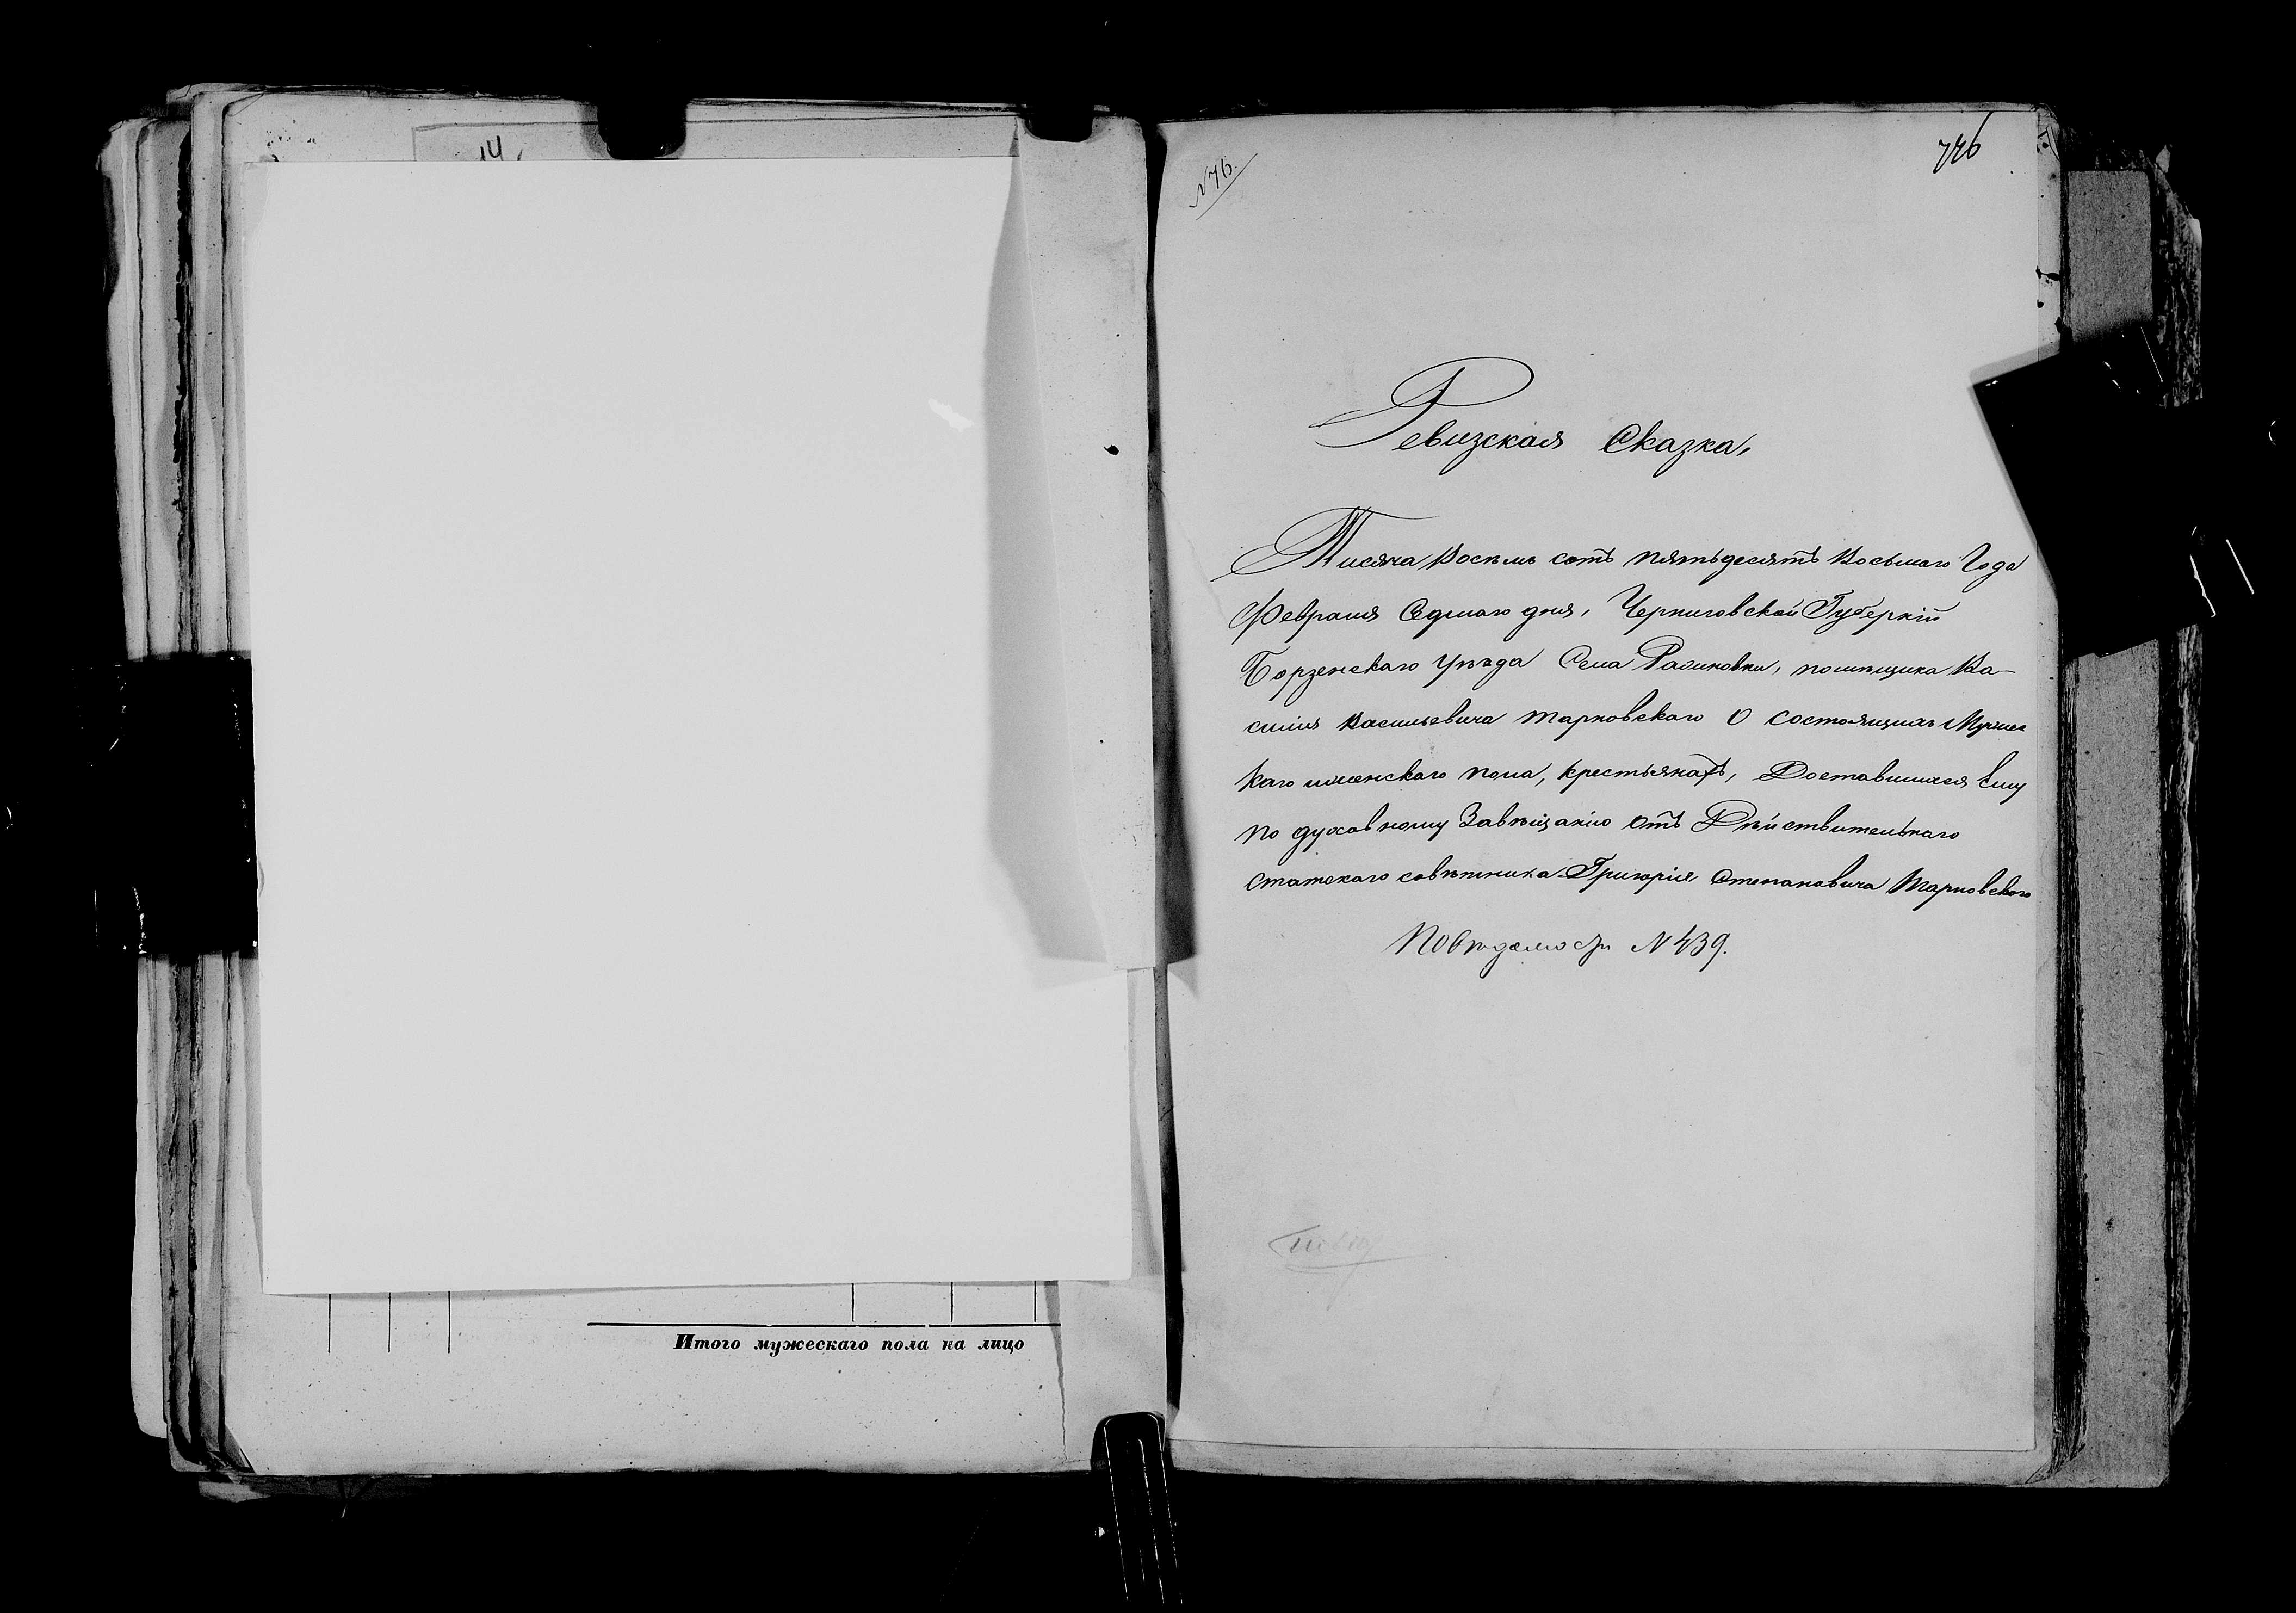 14
Итого мужескаго пола на лицо
N 76.
776
Ревизская Сказка,
Тисяча восемь сотъ пятьдесятъ восьмаго Года
Февраля Седмаго дня, Черниговской Губерніи
Борзенскаго уѣзда Села помѣщика Ва-
силия васильевича тарновскаго О состоящихъ Мужес
каго иженскаго пола, крестьянахъ, Доставшихся Ему
по духовному Завѣщанію отъ Дѣйствительнаго
статскаго совѣтника Григорія Степановича Тарновскаго
По вѣдомости N 439.